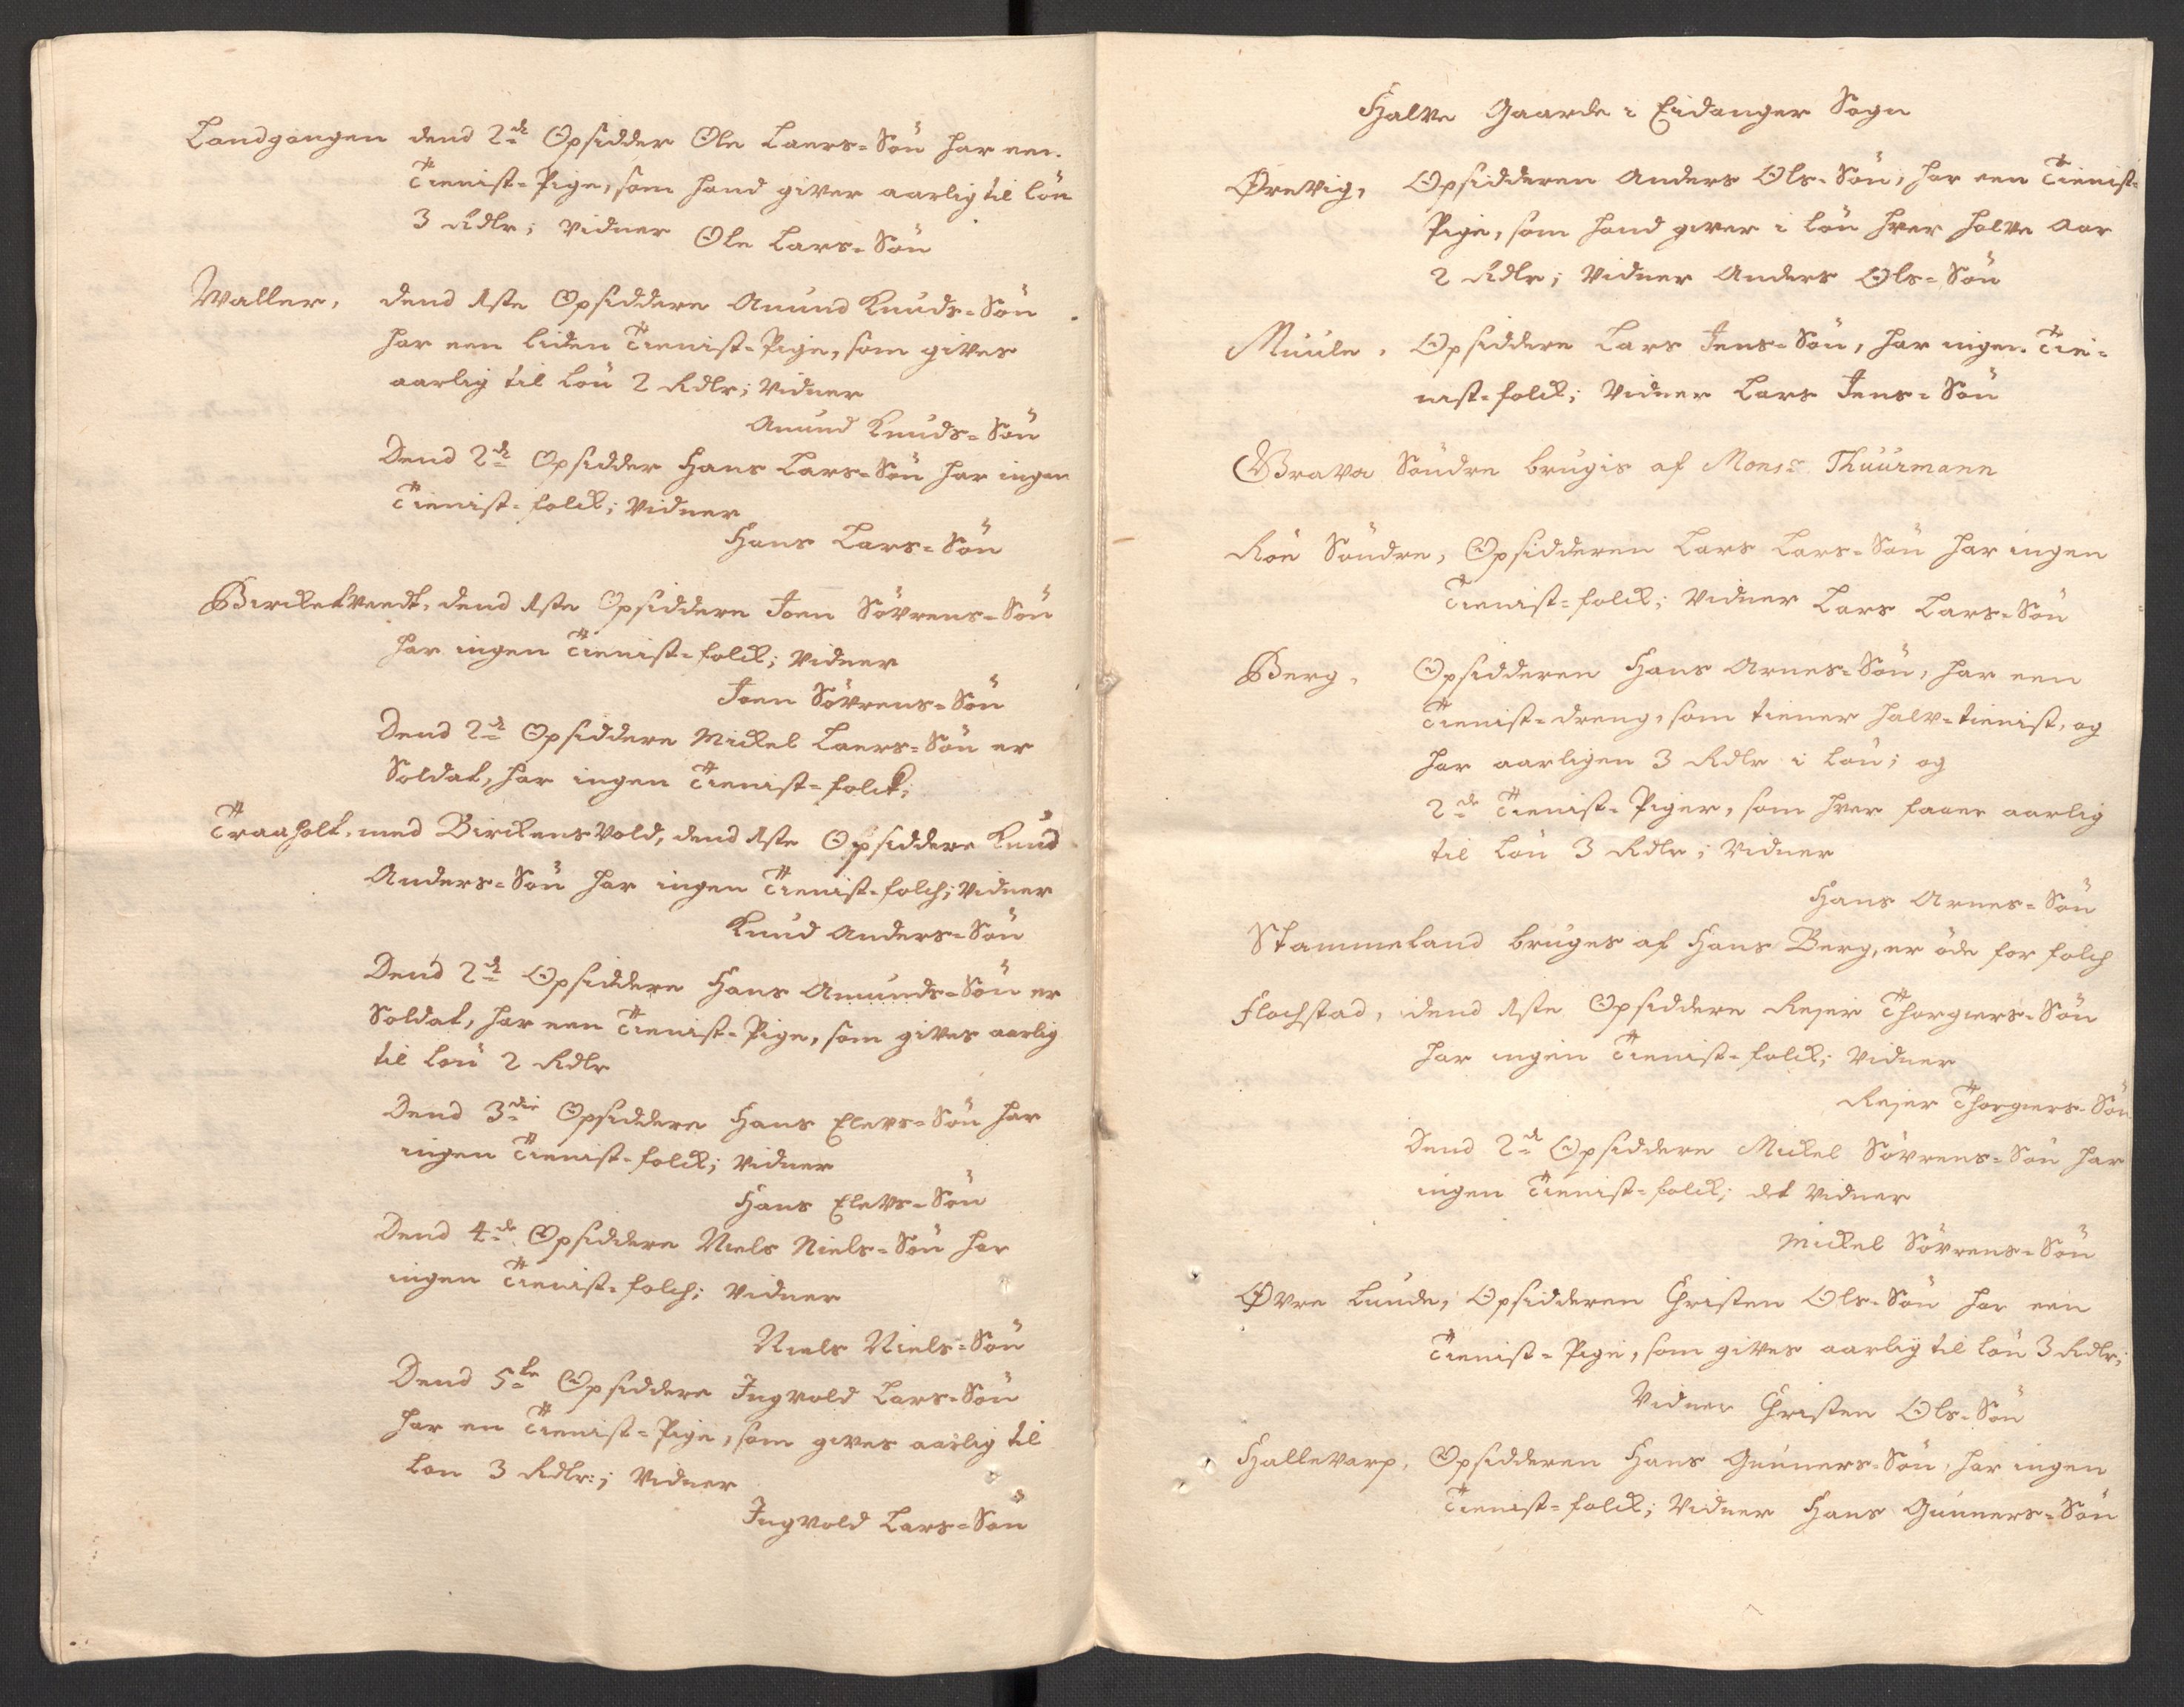 Landgangen dend 2de Opsidder Ole Laers-Sön har een
Tienist-Pige, som hand giver aarlig til lön
3 Rdlr; Vidner Ole Lars-Sön
Waller, dend 1ste Opsiddere Anund Knuds-Sön
har een liden Tienist-Pige, som gives
aarlig til lön 2 Rdlr; Vidner
Anund Knuds-Sön
Dend 2de Opsidder Hans Lars-Sön har ingen
Tienist-folck; Vidner
Hans Lars-Sön
Bircketveedt, dend 1ste Opsiddere Joen Sövrens-Sön
har ingen Tienist-folck; Vidner
Joen Sövrens-Sön
Dend 2de Opsiddere Mickel Laers-Sön er
Soldat, har ingen Tienist-folck;
Traaholt, med Birckensvold, dend 1ste Opsiddere Knud
Anders-Sön har ingen Tienist-folch; Vidner
Knud Anders-Sön
Dend 2de Opsiddere Hans Amunds-Sön er
Soldat, har een Tienist-Pige, som gives aarlig
til lön 2 Rdlr
Dend 3die Opsiddere Hans Elevs-Sön har
ingen Tienist-folck; Vidner
Hans Elevs-Sön
Dend 4de Opsiddere Niels Niels-Sön har
ingen Tienist-folch; Vidner
Niels Niels-Sön
Dend 5te Opsiddere Ingvold Lars-Sön
har en Tienist-Pige, som gives aarlig til
Lön 3 Rdlr:; Vidner
Ingvold Lars-Sön
Halve Gaarde i Eidanger Sogn
Ørevig, Opsidderen Anders Ols-Sön, har een Tienist-
Pige, som hand giver i lön hver halve Aar
2 Rdlr; Vidner Anders Ols-Sön
Muule, Opsiddere Lars Jens-Sön, har ingen Tie-
nist-folck; Vidner Lars Jens-Sön
Grava Söndre brugis af Monsr Thuurmann
Röe Söndre, Opsidderen Lars Lars-Sön har ingen
Tienist-folck; Vidner Lars Lars-Sön
Berg, Opsidderen Hans Arnes-Sön, har een
Tienist-dreng, som tiener halv-tienist, og
har aarligen 3 Rdlr i lön; og
2de Tienist-Piger, som hver faaer aarlig
til lön 3 Rdlr; Vidner
Hans Arnes-Sön
Stammeland bruges af Hans Berg, er öde for folch
Flochstad, dend 1ste Opsiddere Rejer Thorgiers-Sön
har ingen Tienist-folck; Vidner
Rejer Thorgiers-Sön
Dend 2de Opsiddere Mickel Sövrens-Sön har
ingen Tienist-folck; det Vidner
Mickel Sövrens-Sön
Øvre Lunde, Opsidderen Christen Ols-Sön har een
Tienist-Pige, som gives aarlig til lön 3 Rdlr;
Vidner Christen Ols-Sön
Hallevarp, Opsidderen Hans Gunners-Sön, har ingen
Tienist-folck; Vidner Hans Gunners-Sön